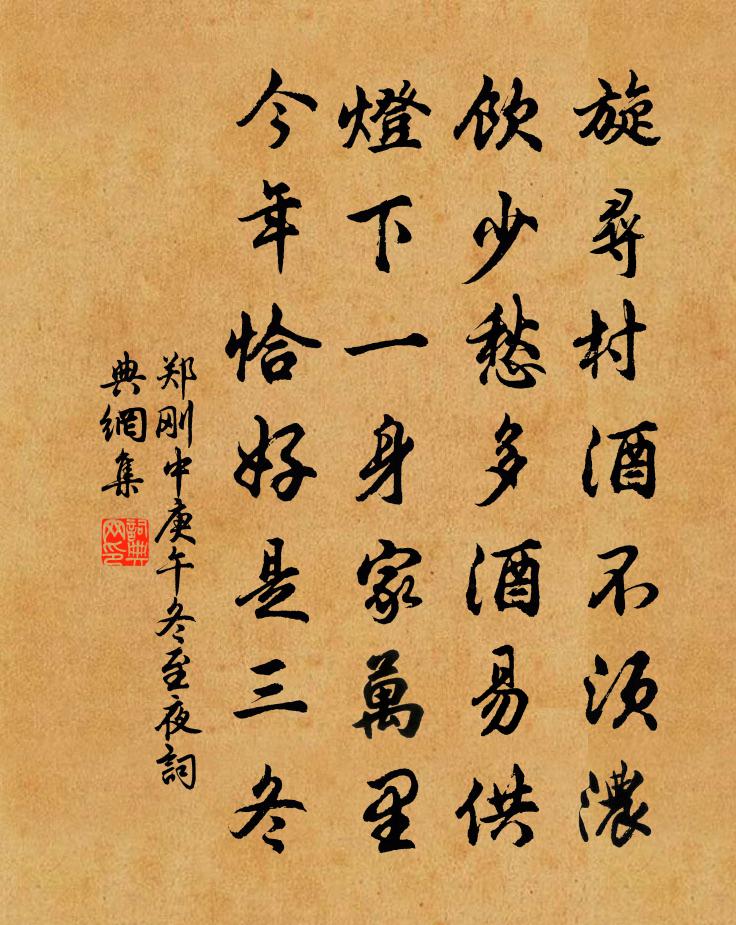 旋尋村酒不須濃
飲少愁多酒易供
燈下一身家萬里
今年恰好是三冬
郑刚中庚午冬至夜詞
典網集
詞典
网印